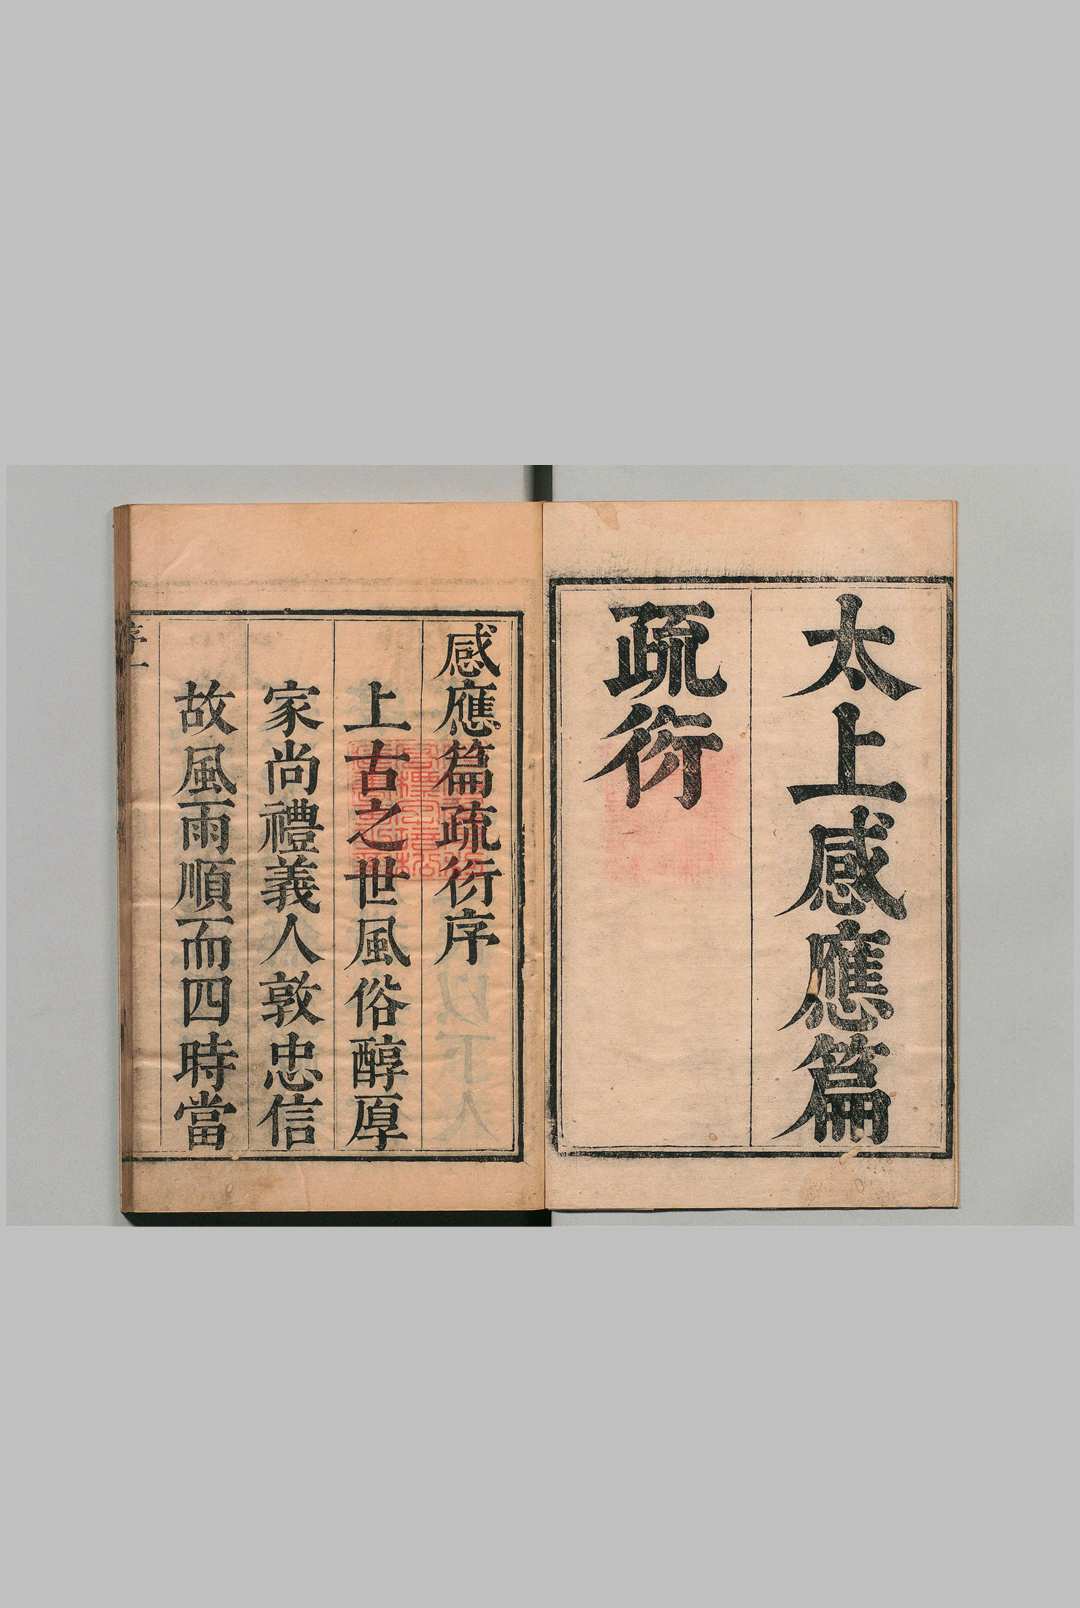 太上感應篇
疏衍
感應篇疏衍序
上古之世風俗醇厚
家尚禮義人敦忠信
故風雨順而四時當
序一